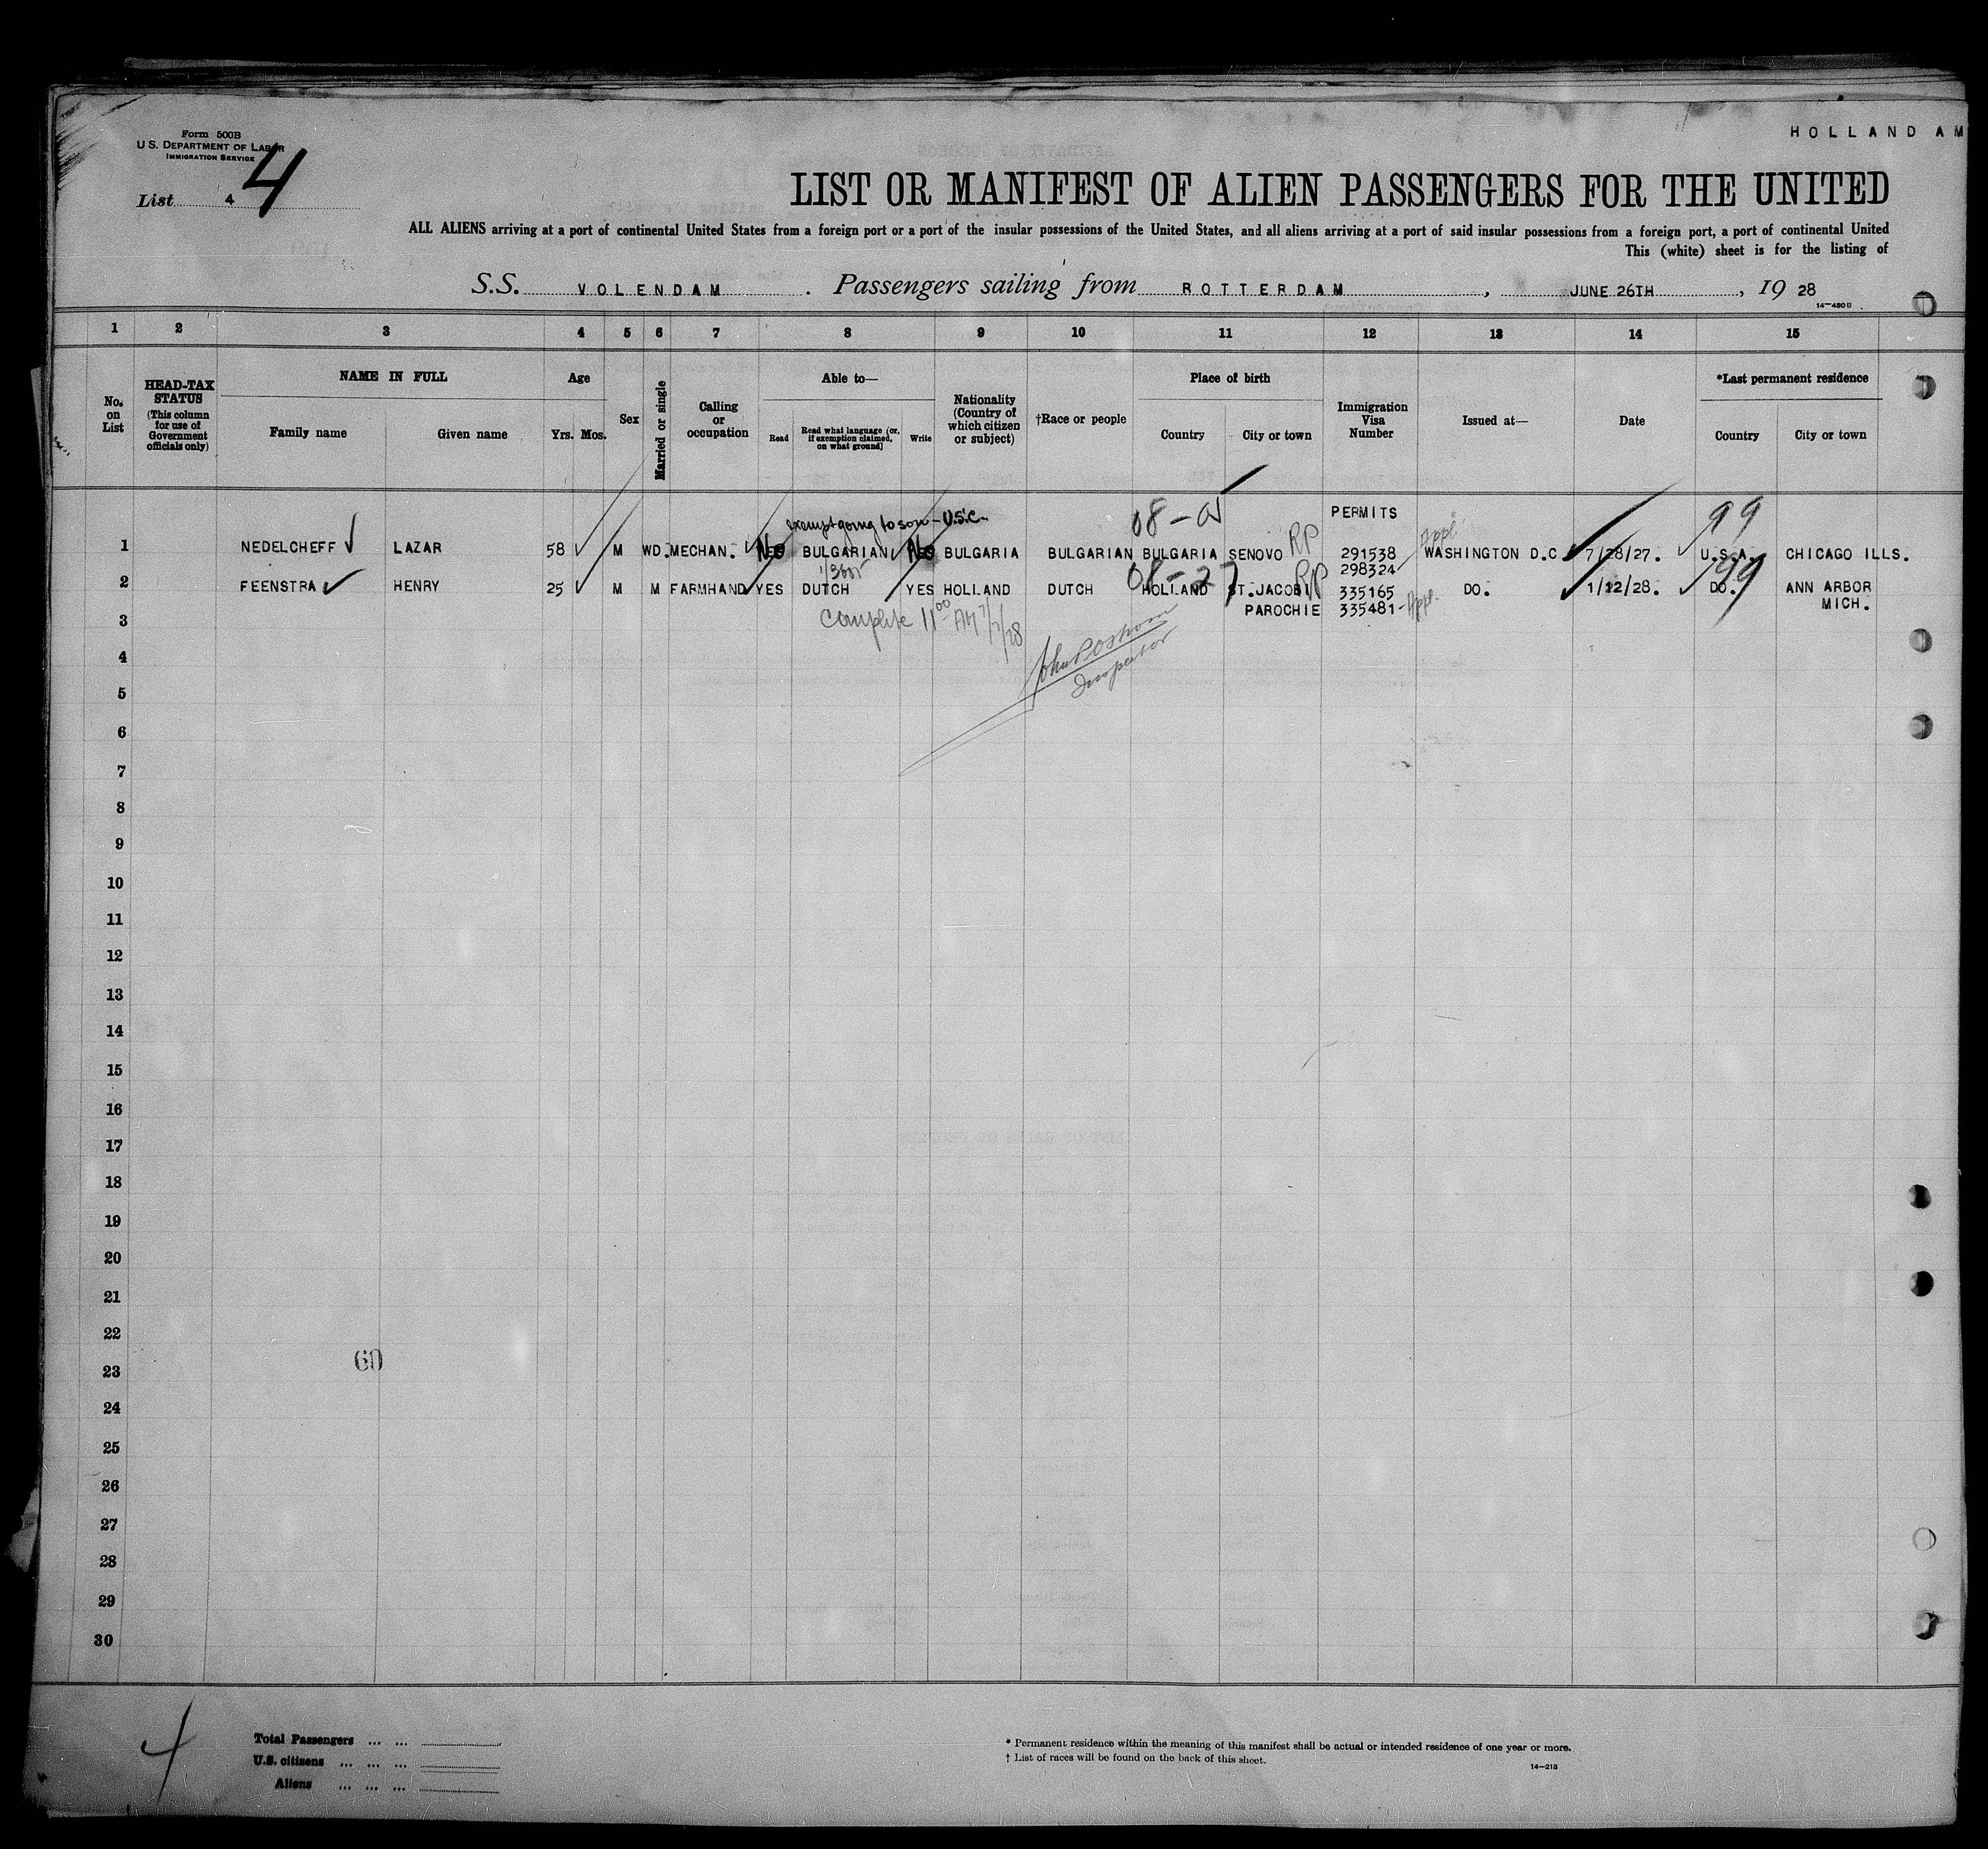 HOLLAND AM
Form 500B
U.S. DEPARTMENT OF LABOR
IMMIGRATION SERVICE
List 4 4
LIST OR MANIFEST OF ALIEN PASSENGERS FOR THE UNITED
ALL ALIENS arriving at a port of continental United States from a foreign port or a port of the insular possessions of the United States, and all aliens arriving at a port of said insular possessions from a foreign port, a port of continental United
This (white) sheet is for the listing of
S.S. VOLENDAM . Passengers sailing from ROTTERDAM , JUNE 26TH , 19 28
14—480 B
1 2 3 4 5 6 7 8 9 10 11 12 13 14 15
No. on List
HEAD-TAX STATUS (This column for use of Government officials only)
NAME IN FULL
Family name Given name
Age
Yrs. Mos.
Sex
Married or single
Calling or occupation
Able to—
Read
Read what language [or, if exemption claimed, on what ground]
Write
Nationality (Country of which citizen or subject)
†Race or people
Place of birth
Country City or town
Immigration Visa Number
Issued at—
Date
*Last permanent residence
Country City or town
exempt going to son - U.S.C. 08 - PERMITS Appl. 99
1 NEDELCHEFF LAZAR 58 M WD. MECHAN. No BULGARIAN No BULGARIA BULGARIAN BULGARIA SENOVO RP 291538 WASHINGTON D.C 7/28/27. U.S.A. CHICAGO ILLS.
298324
08-27 RP 99
2 FEENSTRA HENRY 25 M M FARMHAND YES DUTCH YES HOLLAND DUTCH HOLLAND ST.JACOBI 335165 DO. 1/12/28. DO. ANN ARBOR
PAROCHIE 335481- Appl. MICH.
3 Complete 11 00 AM 7/7/28
Inspector
4
5
6
7
8
9
10
11
12
13
14
15
16
17
18
19
20
21
22
60
23
24
25
26
27
28
29
30
4
Total Passengers ... ...
U.S. citizens ... ... ...
Aliens ... ... ...
* Permanent residence within the meaning of this manifest shall be actual or intended residence of one year or more.
† List of races will be found on the back of this sheet.
14—213